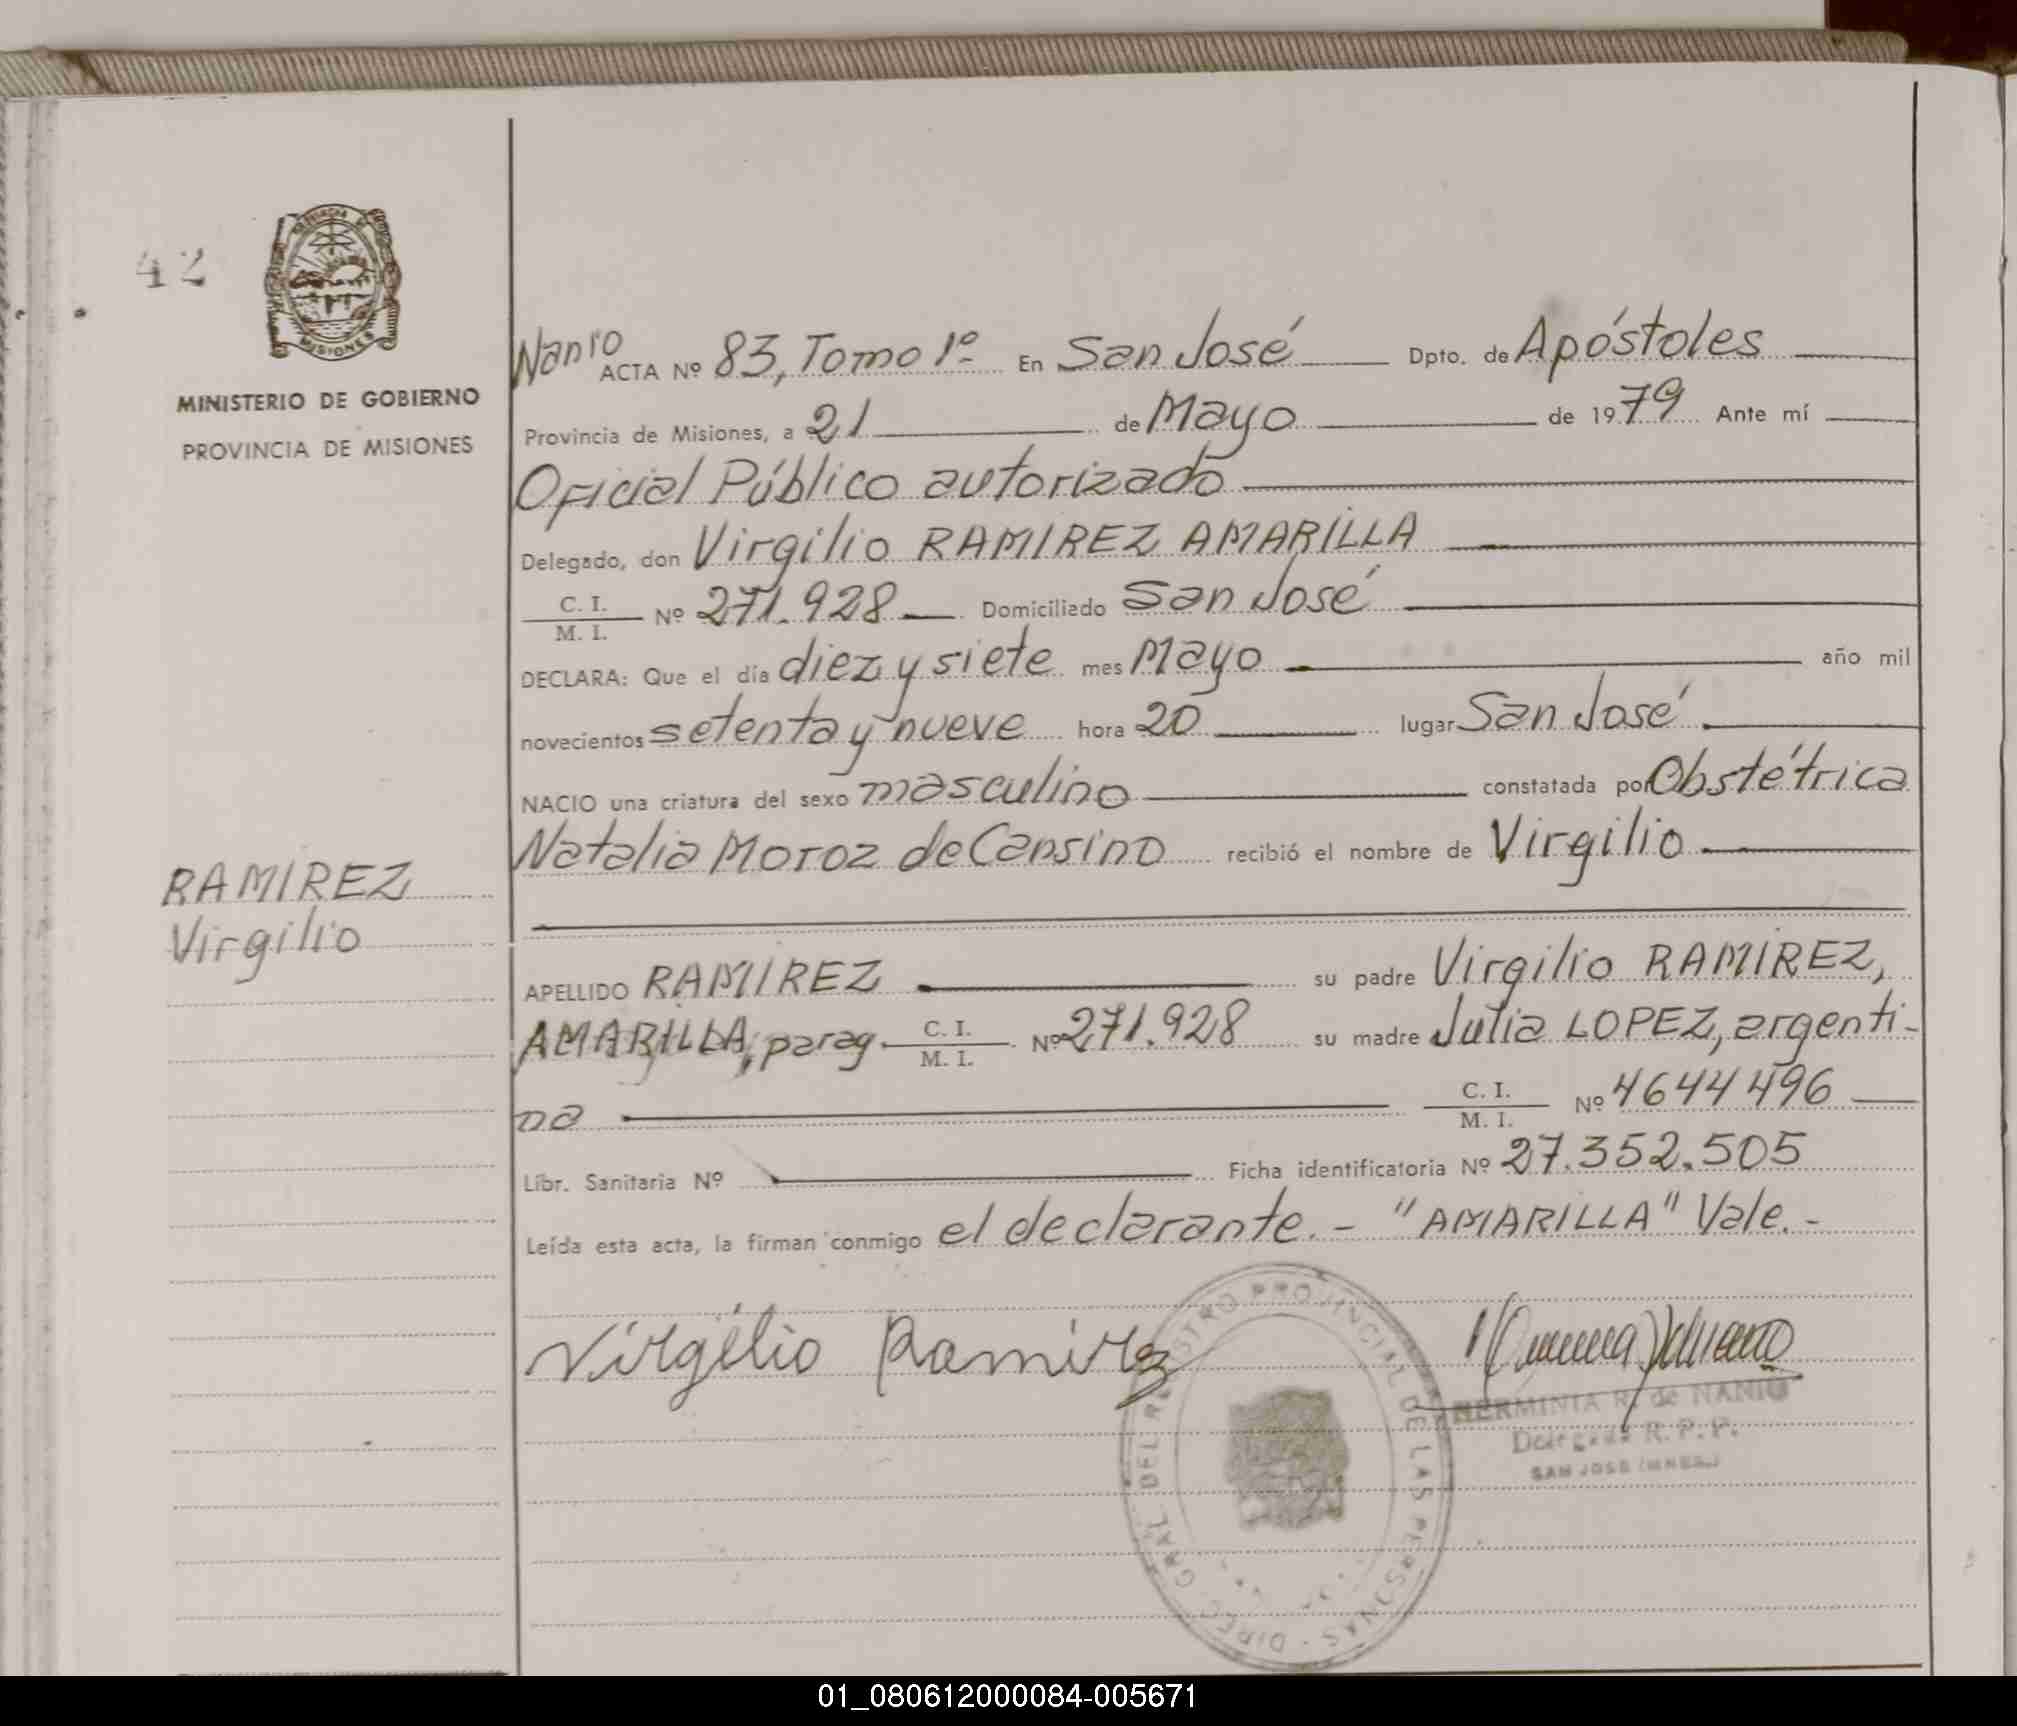 42
MISIONES
MINISTERIO DE GOBIERNO
PROVINCIA DE MISIONES
RAMIREZ
Virgilio
Nanio
ACTA Nº 83, Tomo 1º En San José Dpto. de Apóstoles
Provincia de Misiones, a 21 de Mayo de 1979 Ante mí
Oficial Público autorizado
Delegado, don Virgilio RAMIREZ AMARILLA
C. I.
M. I. Nº 271.928 Domiciliado San José
DECLARA: Que el día diez y siete mes Mayo año mil
novecientos setenta y nueve hora 20 lugar San José
NACIO una criatura del sexo masculino constatada por Obstétrica
Natalia Moroz de Cansino recibió el nombre de Virgilio
APELLIDO RAMIREZ su padre Virgilio RAMIREZ,
AMARILLA, parag. C. I.
M. I. Nº 271.928 su madre Julia LOPEZ, argenti-
na C. I.
M. I. Nº 4644496
Libr. Sanitaria Nº Ficha identificatoria Nº 27.352.505
Leída esta acta, la firman conmigo el declarante. - "AMARILLA" Vale. -
Virgilio Ramirez
DIREC. GRAL. DEL REGISTRO PROVINCIAL DE LAS PERSONAS
HERMINIA R. de NANIO
Delegada R. P. P.
SAN JOSE (MNES.)
01_080612000084-005671